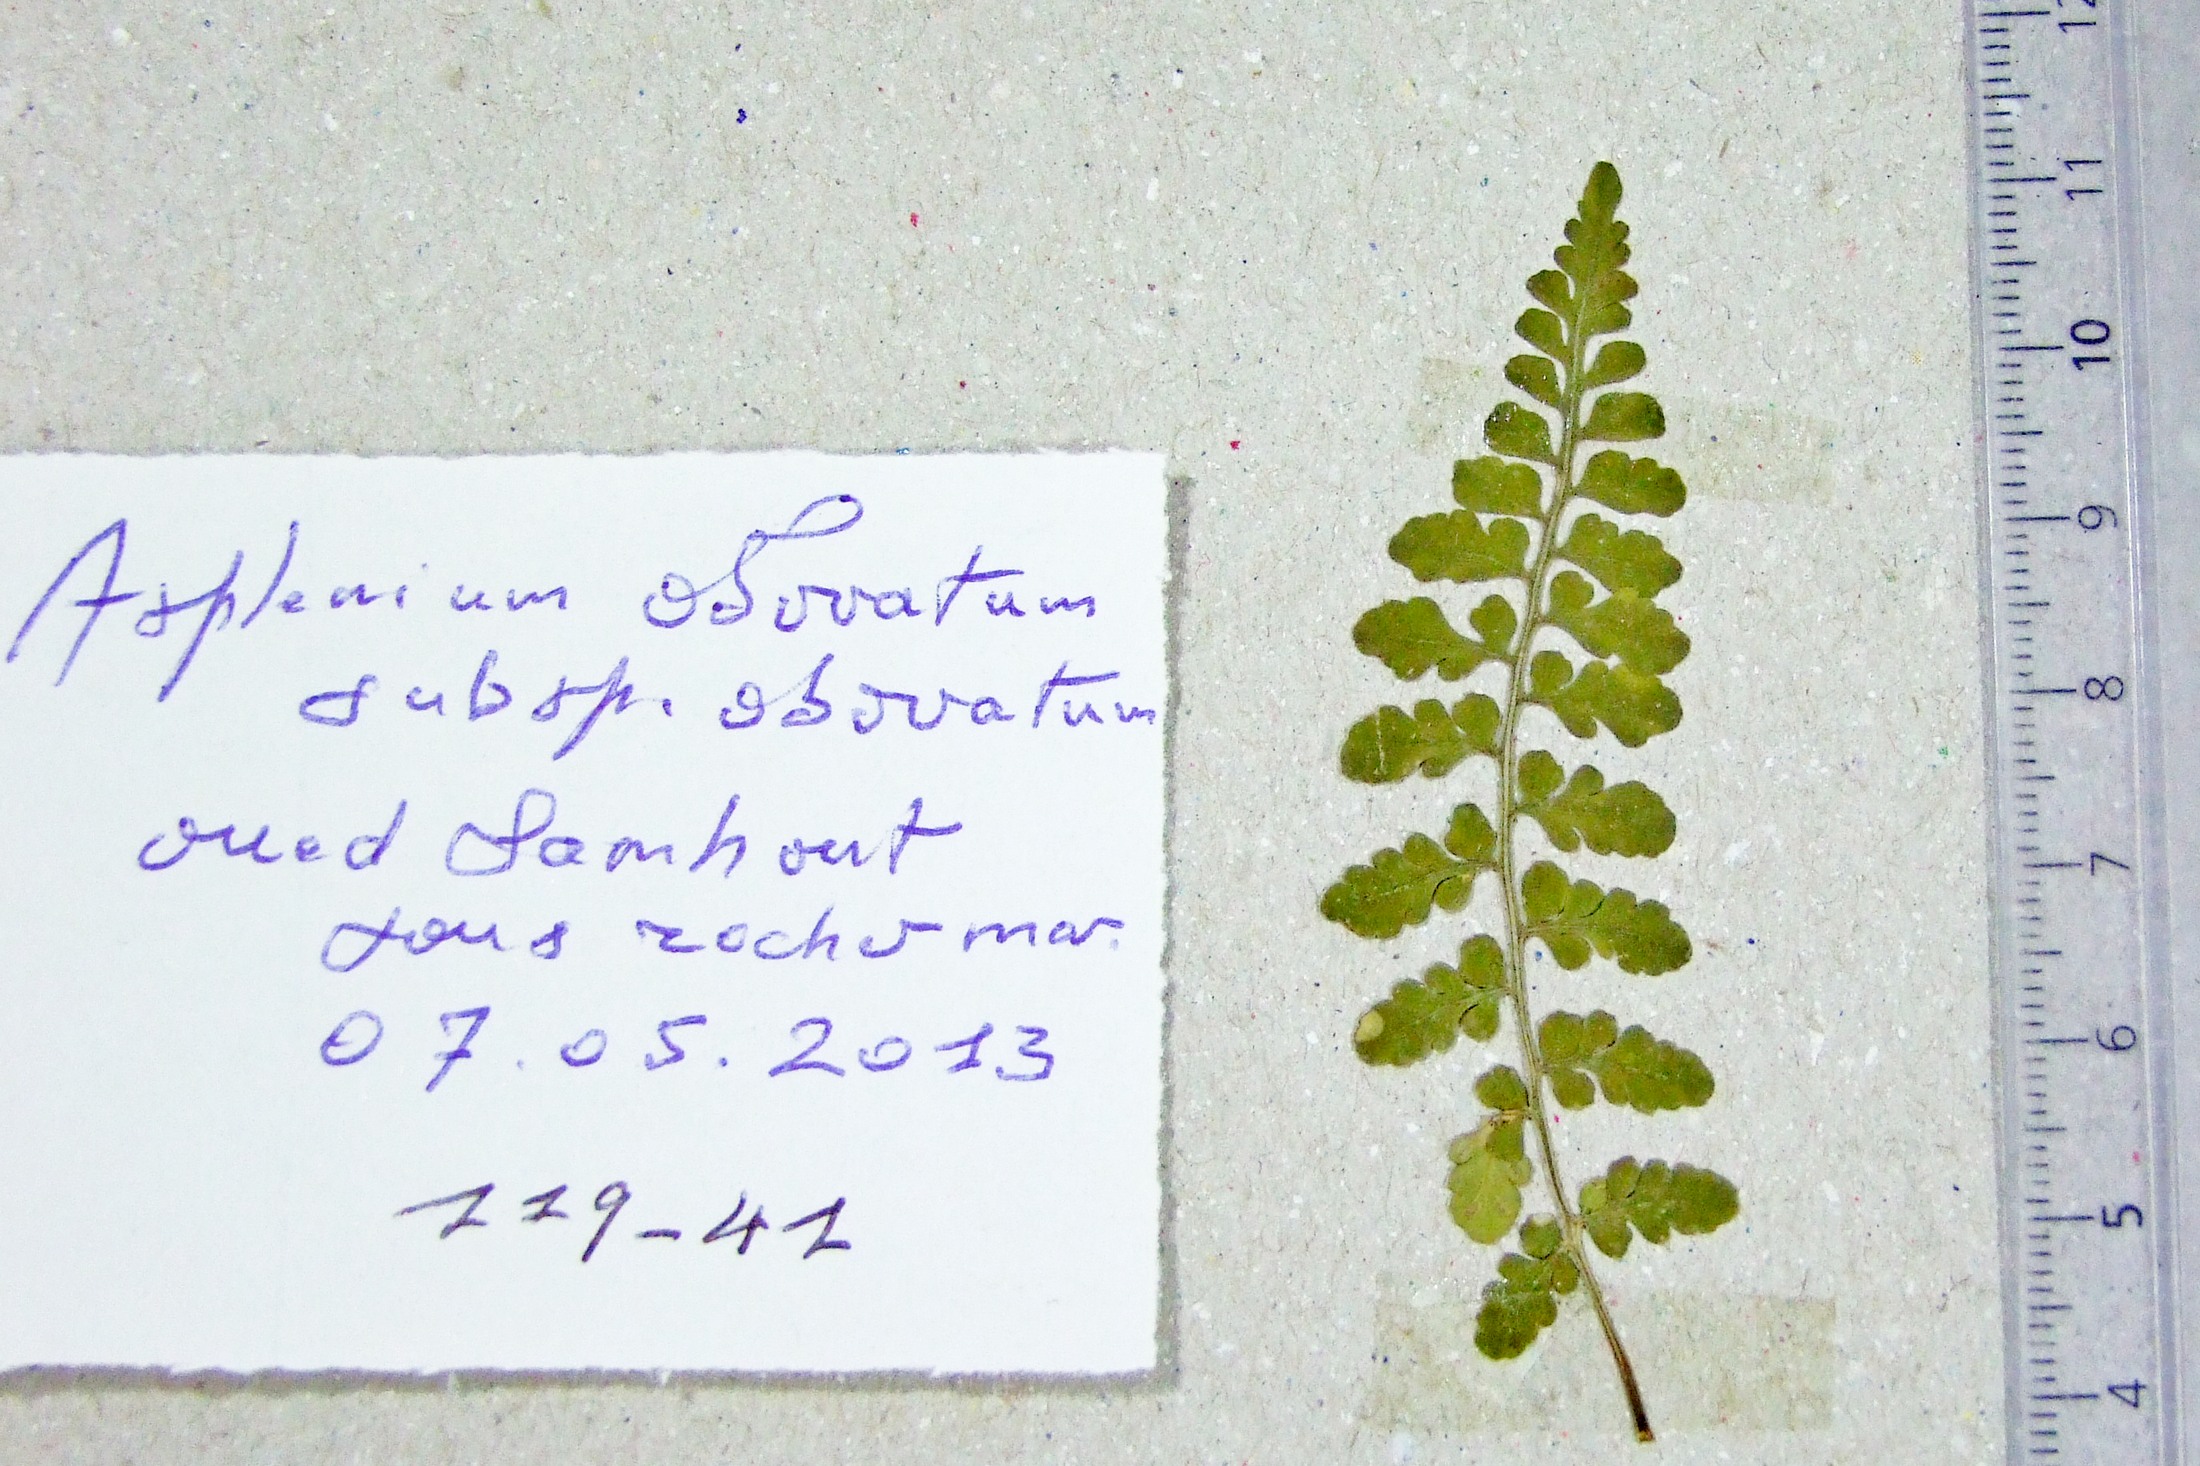 Asplenium obovatum
subsp. obovatum
oued
sous rocher mar.
07.05.2013
119-41
12
11
10
9
8
7
6
5
4